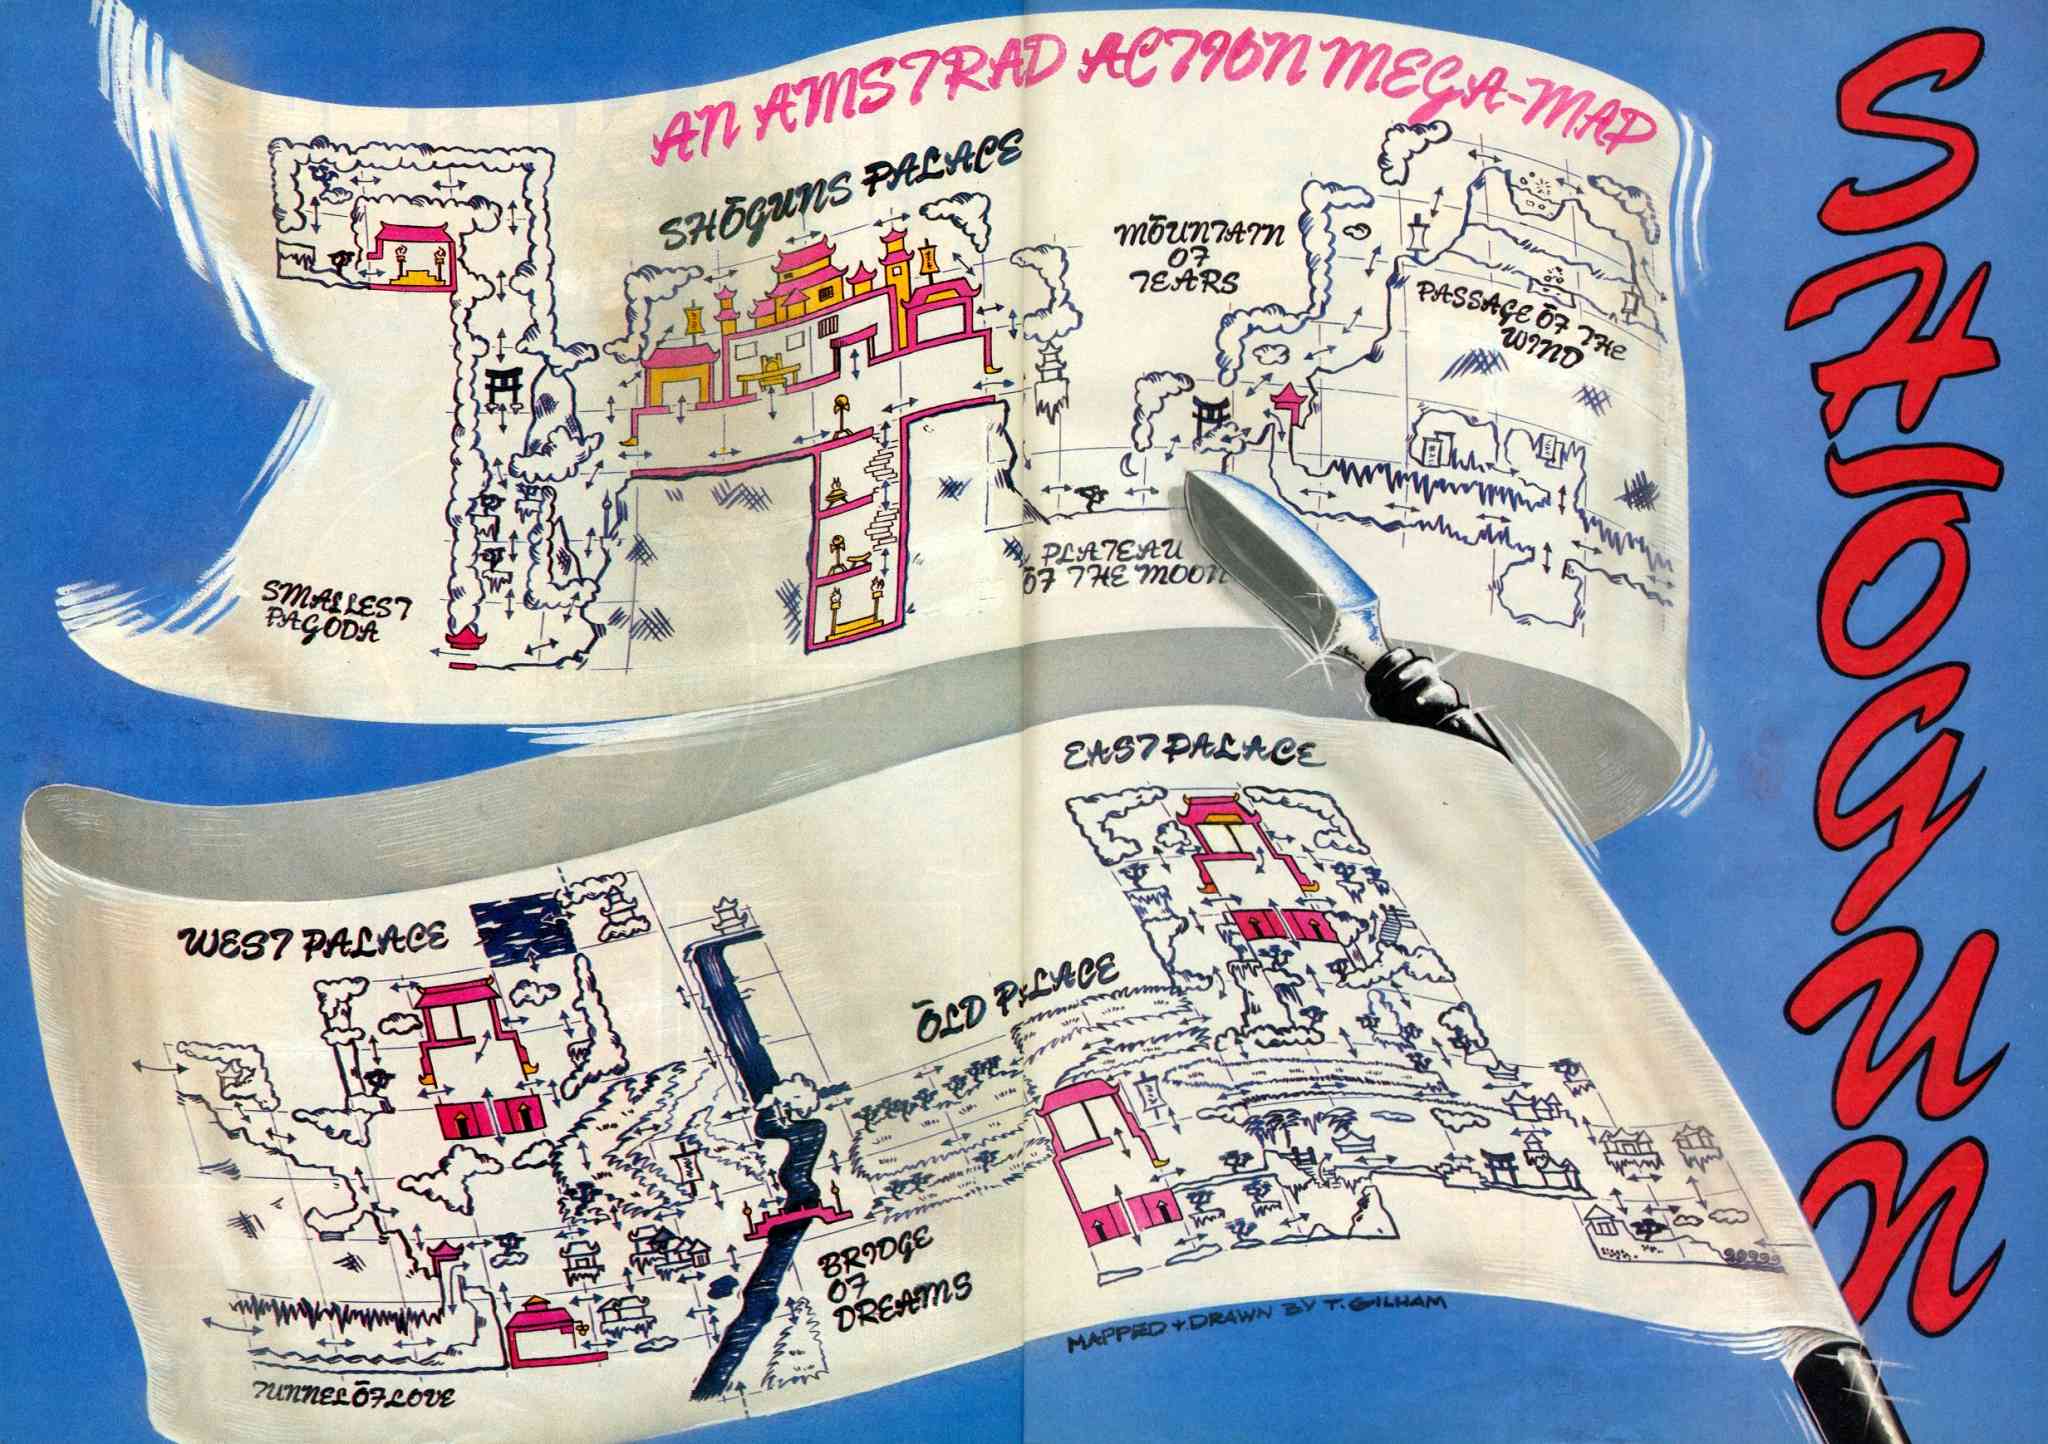 AN AMSTRAD ACTION MEGA-MAP
SHŌGUNS PALACE
MŌUNTAIN
OF
TEARS
PASSAGE ŌF THE
WIND
SMALLEST
PAGODA
PLATEAU
ŌF THE MOON
SHOGUN
EAST PALACE
WEST PALACE
ŌLD PALACE
BRIDGE
OF
DREAMS
TUNNEL ŌF LOVE
MAPPED + DRAWN BY T. GILHAM